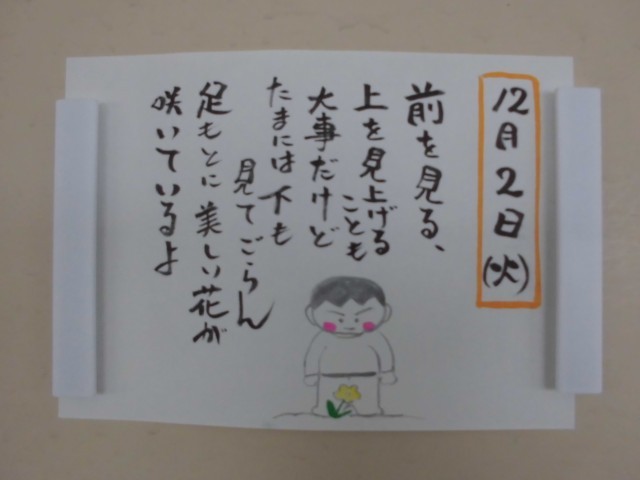 12月2日(火)
前を見る、
上を見上げる
ことも
大事だけど
たまには下も
見てごらん
足もとに美しい花が
咲いているよ